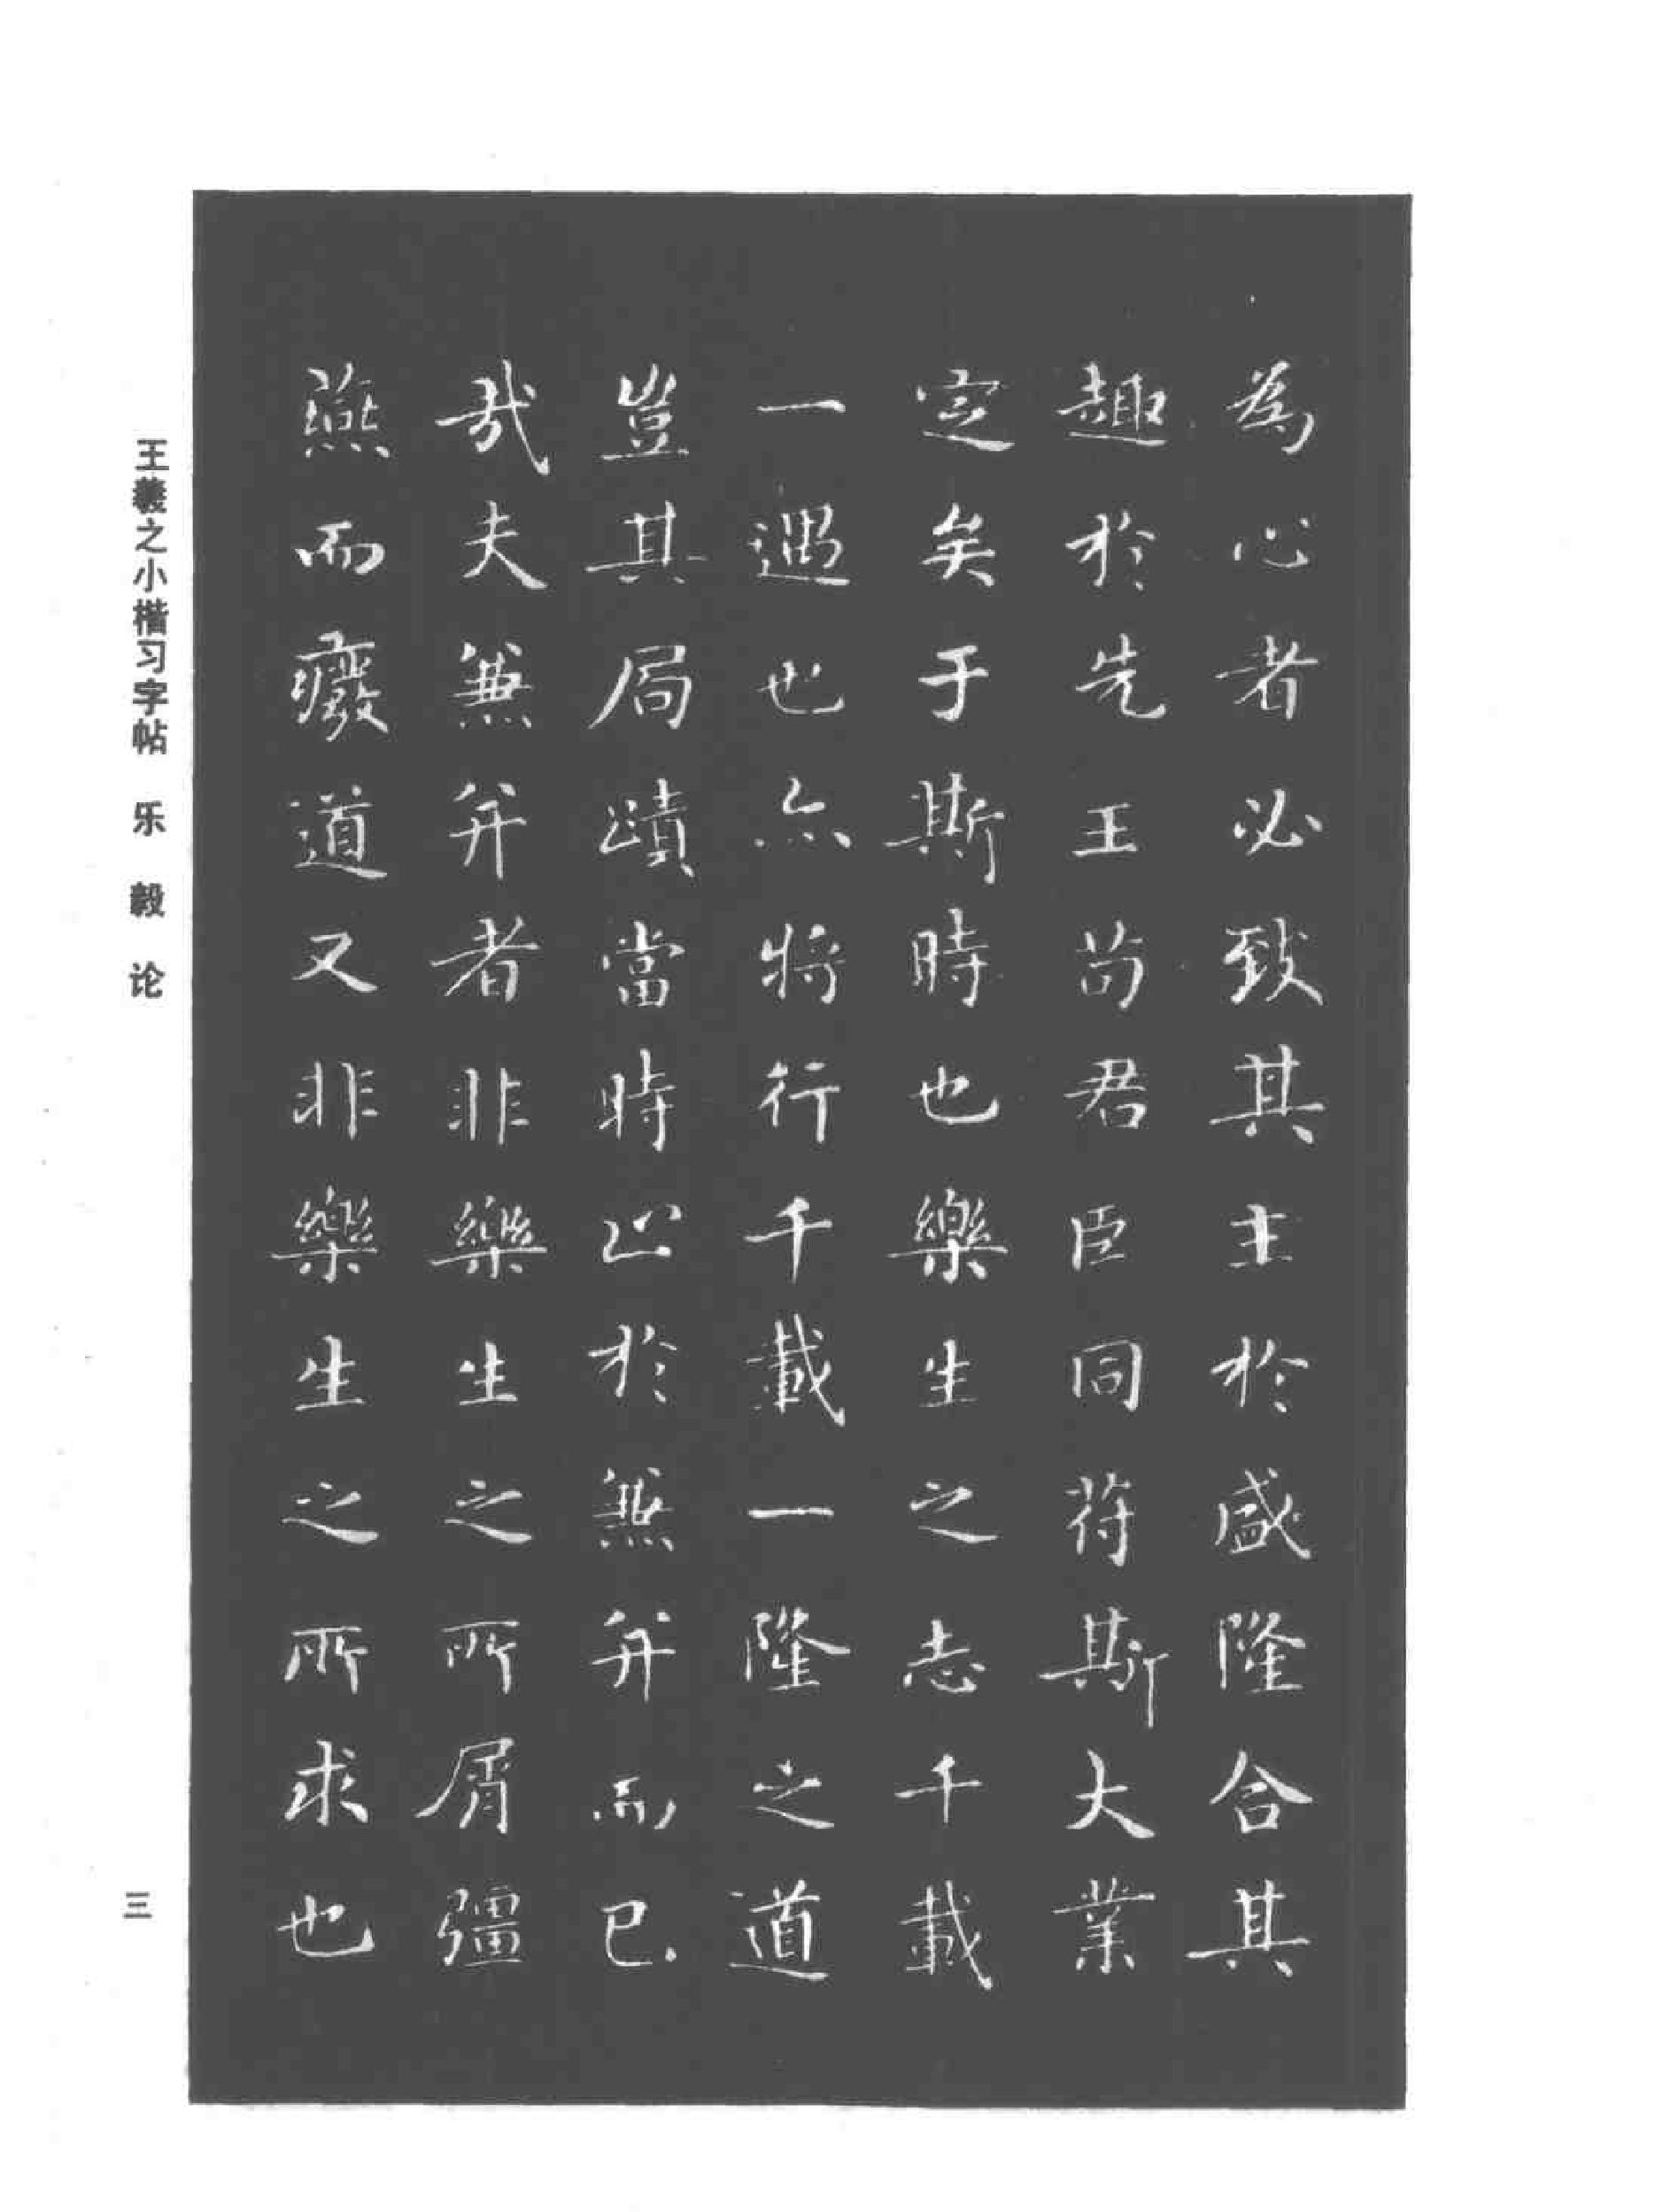 為心者必致其主於盛隆合其
趣於先王苟君臣同符斯大業
定矣于斯時也樂生之志千載
一遇也亦將行千載一隆之道
豈其局蹟當時止於兼并而已
哉夫兼并者非樂生之所屑彊
燕而癈道又非樂生之所求也
王羲之小楷习字帖 乐毅论
三